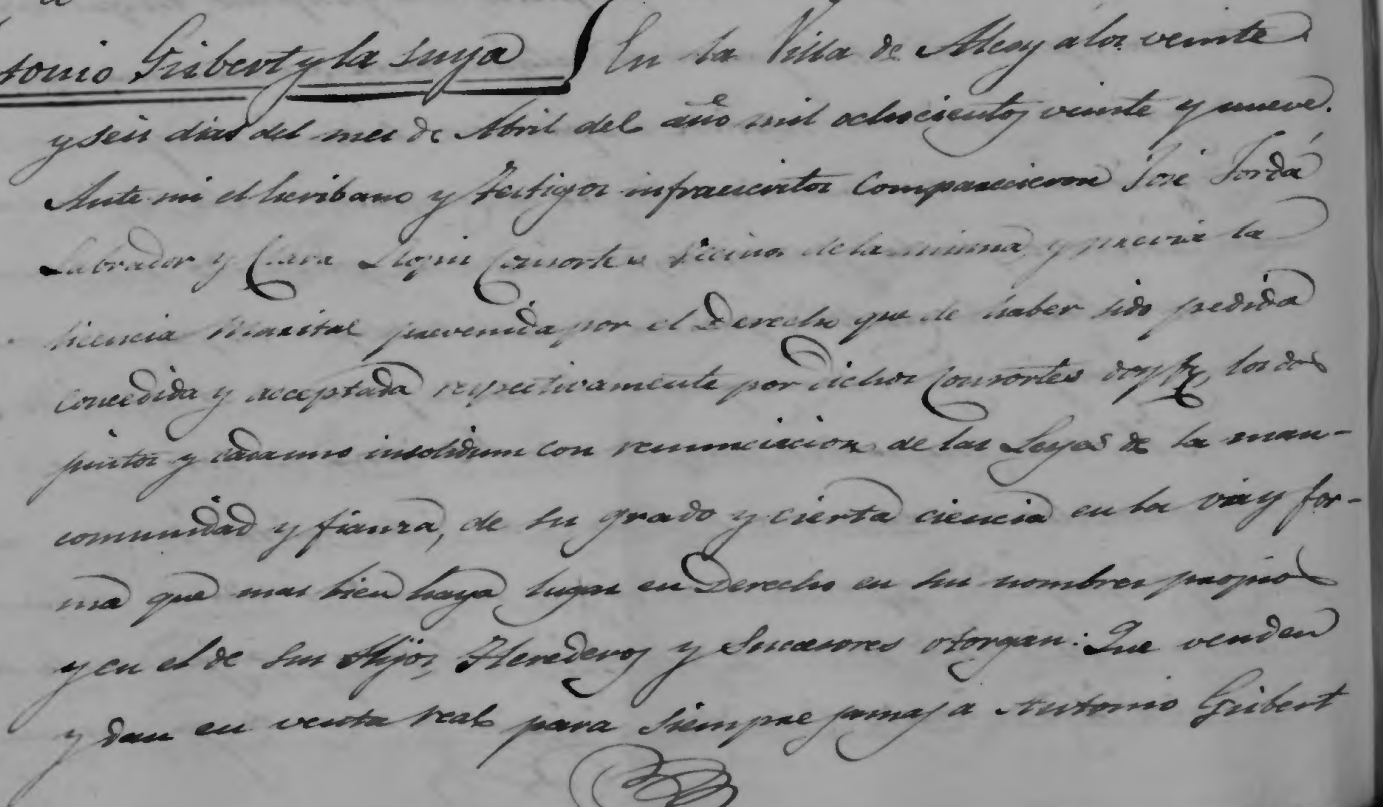 tonio Gisbert y la suya En la Villa de Alcoy a los veinte
y seis dias del mes de Abril del año mil ochocientos veinte y nueve.
Ante mi el Escribano y testigos infraescritos comparecieron José Jordá
Labrador y Clara Llopis Consortes Vecinos de la misma, y previa la
licencia Marital prevenida por el Derecho que de haber sido pedida
concedida y acceptada respectivamente por dichos consortes doy fe, los dos
juntos y cada uno insolidum con renunciacion de las Leyes de la man-
comunidad y fianza, de su grado y cierta ciencia en la via y for-
ma que mas bien haya lugar en Derecho en sus nombres propios
y en el de sus Hijos, Herederos y Sucesores otorgan: Que venden
y dan en venta real para siempre jamas a Antonio Gisbert